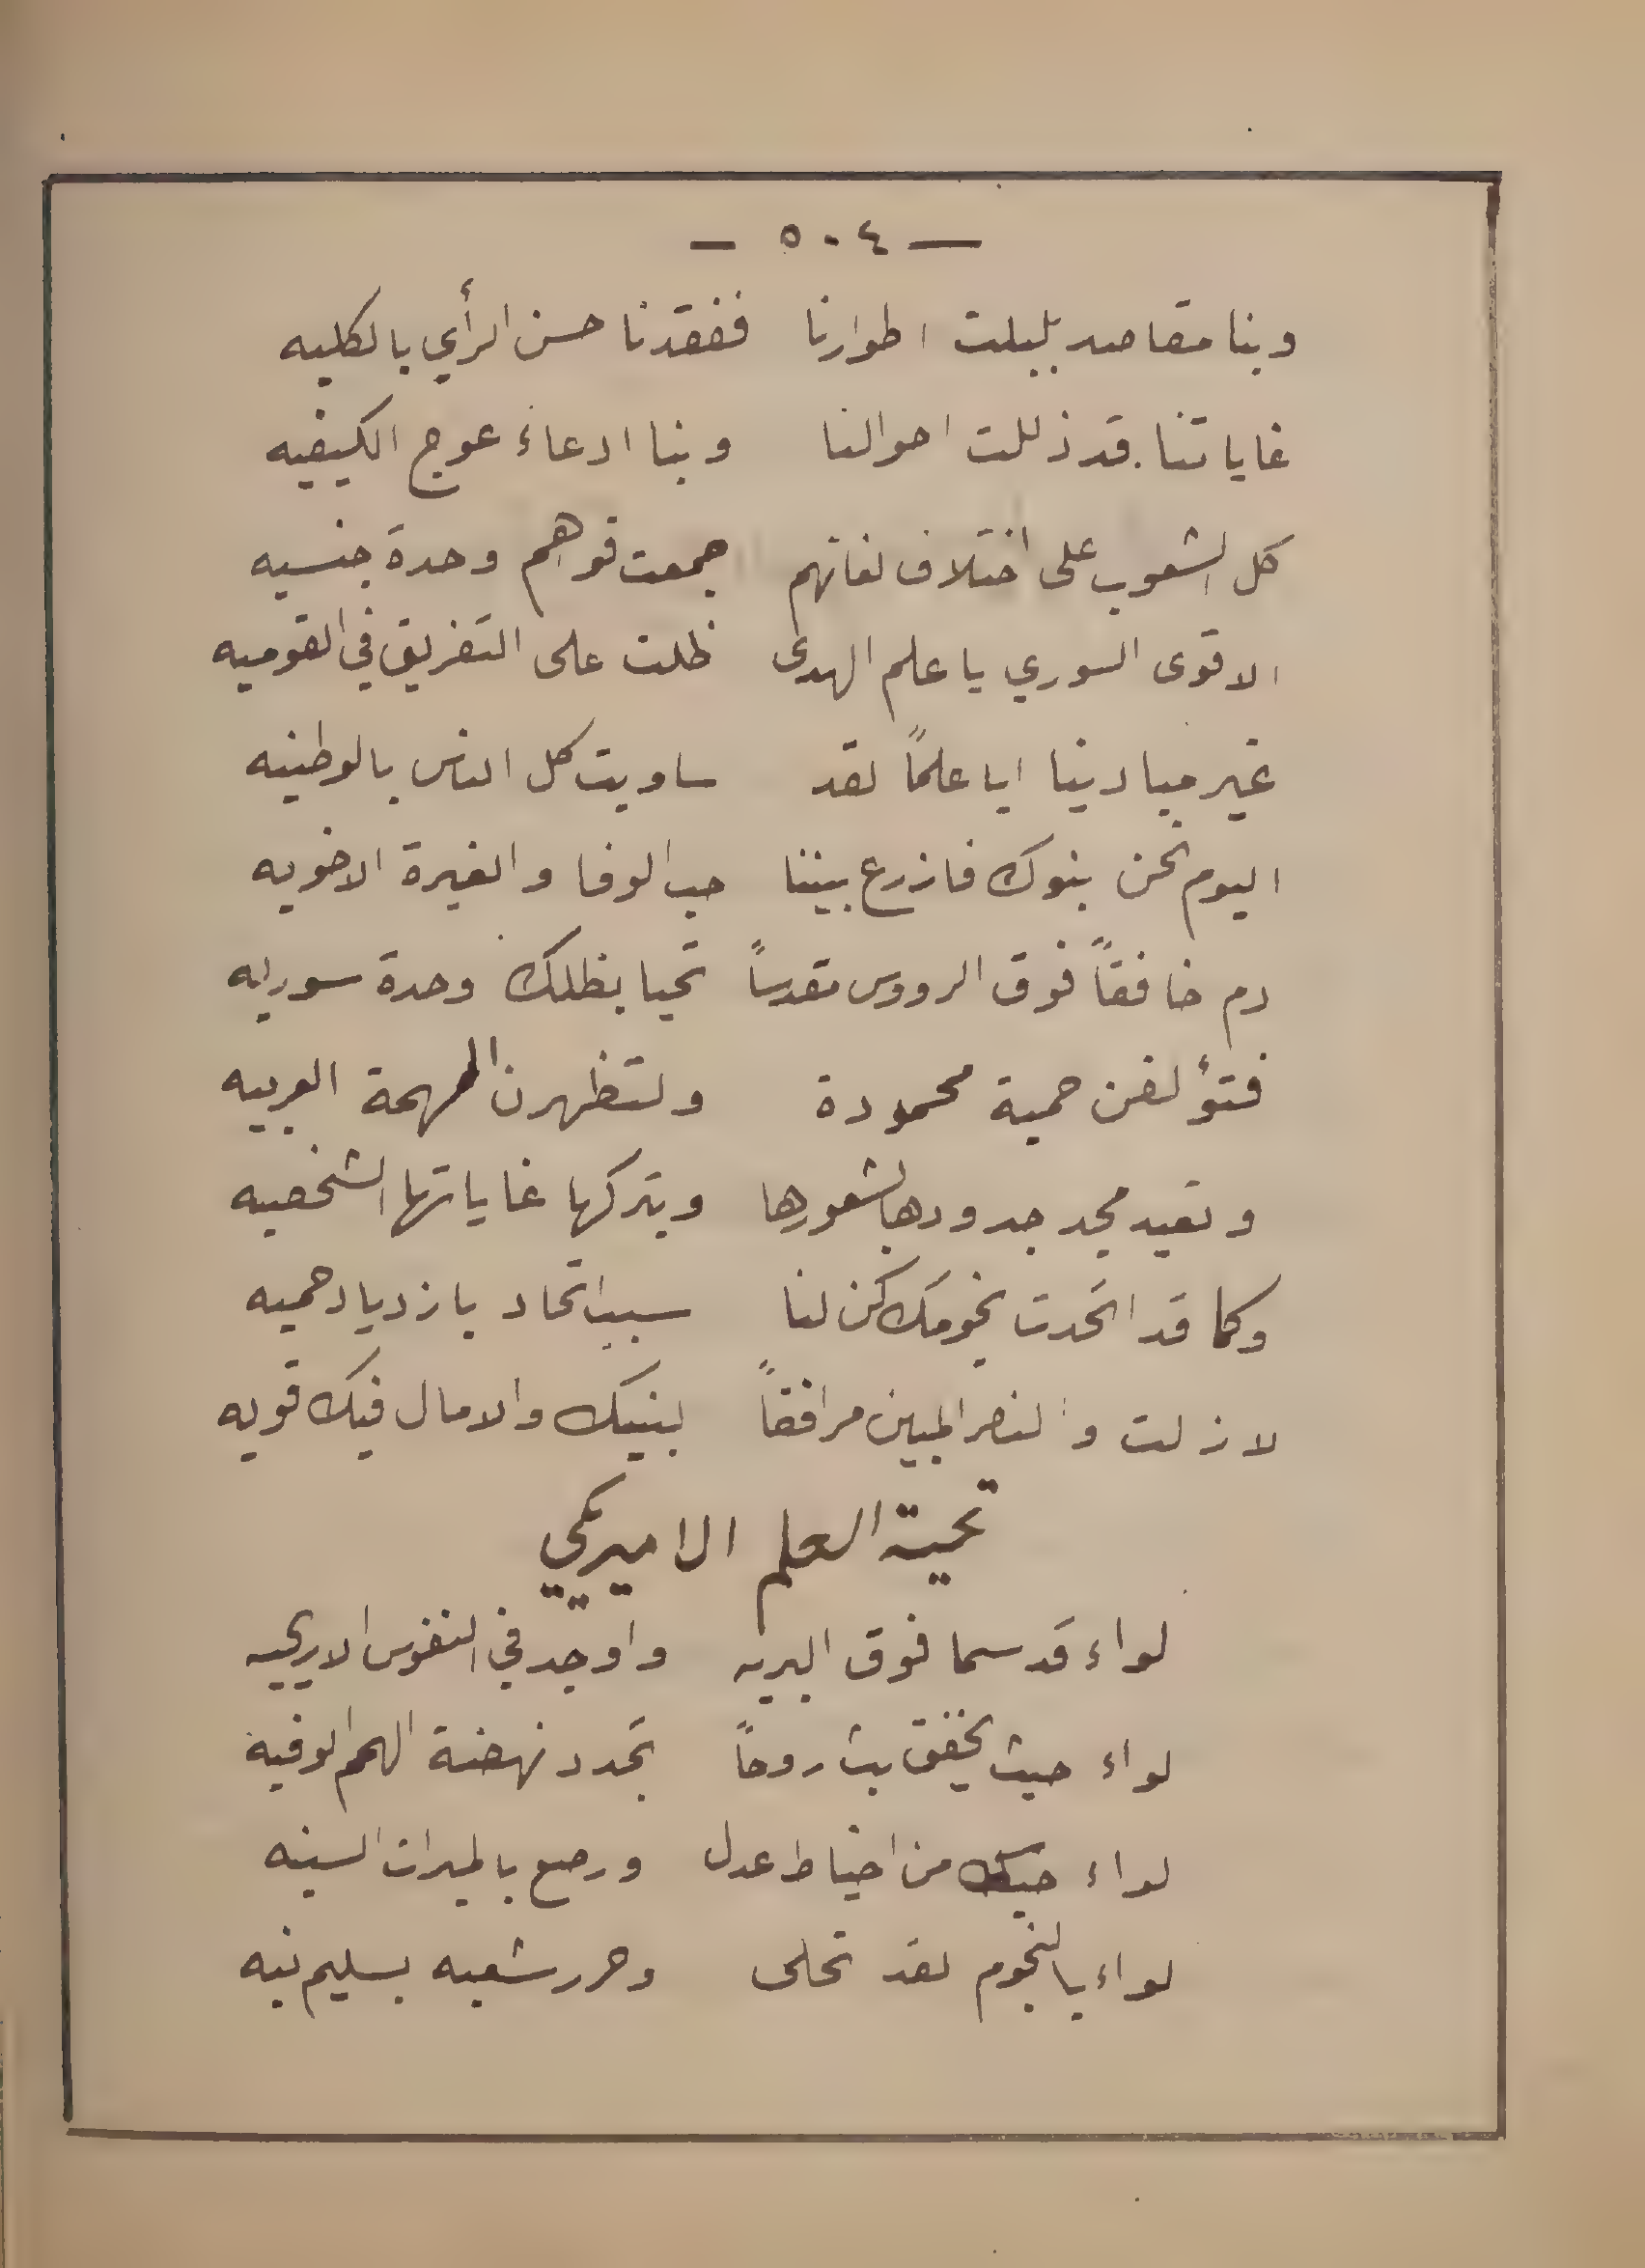 — ٥٠٤ —
وبنا مقاصد بلبلت اطوارنا ففقدنا حسن الرأي بالكليه
غاياتنا قد ذللت احوالنا وبنا ادعاء عوج الكيفيه
كل الشعوب على اختلاف لغاتهم جمعت قواهم وحدة جنسيه
الا قوى السوري يا علم الهدى ظلت على التفريق في القوميه
غير مبادينا ايا علمًا لقد ساويت كل الناس بالوطنيه
اليوم نحن بنوك فازرع بيننا حب الوفا والغيرة الاخويه
دم خافقاً فوق الرووس مقدساً تحيا بظلك وحدة سوريه
فتؤلفن حمية محمودة ولتظهرن المهمة العربيه
وتعيد مجد جدودها بشعورها وبتركها غاياتها الشخصيه
وكما قد اتحدت نجومك كن لنا سبب اتحاد بازدياد حميه
لا زلت والنصر المبين مرافقاً لبنيك والامال فيك قويه
تحية العلم الاميريكي
لواء قد سما فوق البريه واوجد في النفوس الاريحيه
لواء حيث يخفق بث روحاً تجدد نهضة الهمم الوفية
لواء حيك من اخياط عدل ورصع بالميرات السنيه
لواء بالنجوم لقد تحلى وحرر شعبه بسليم نيه